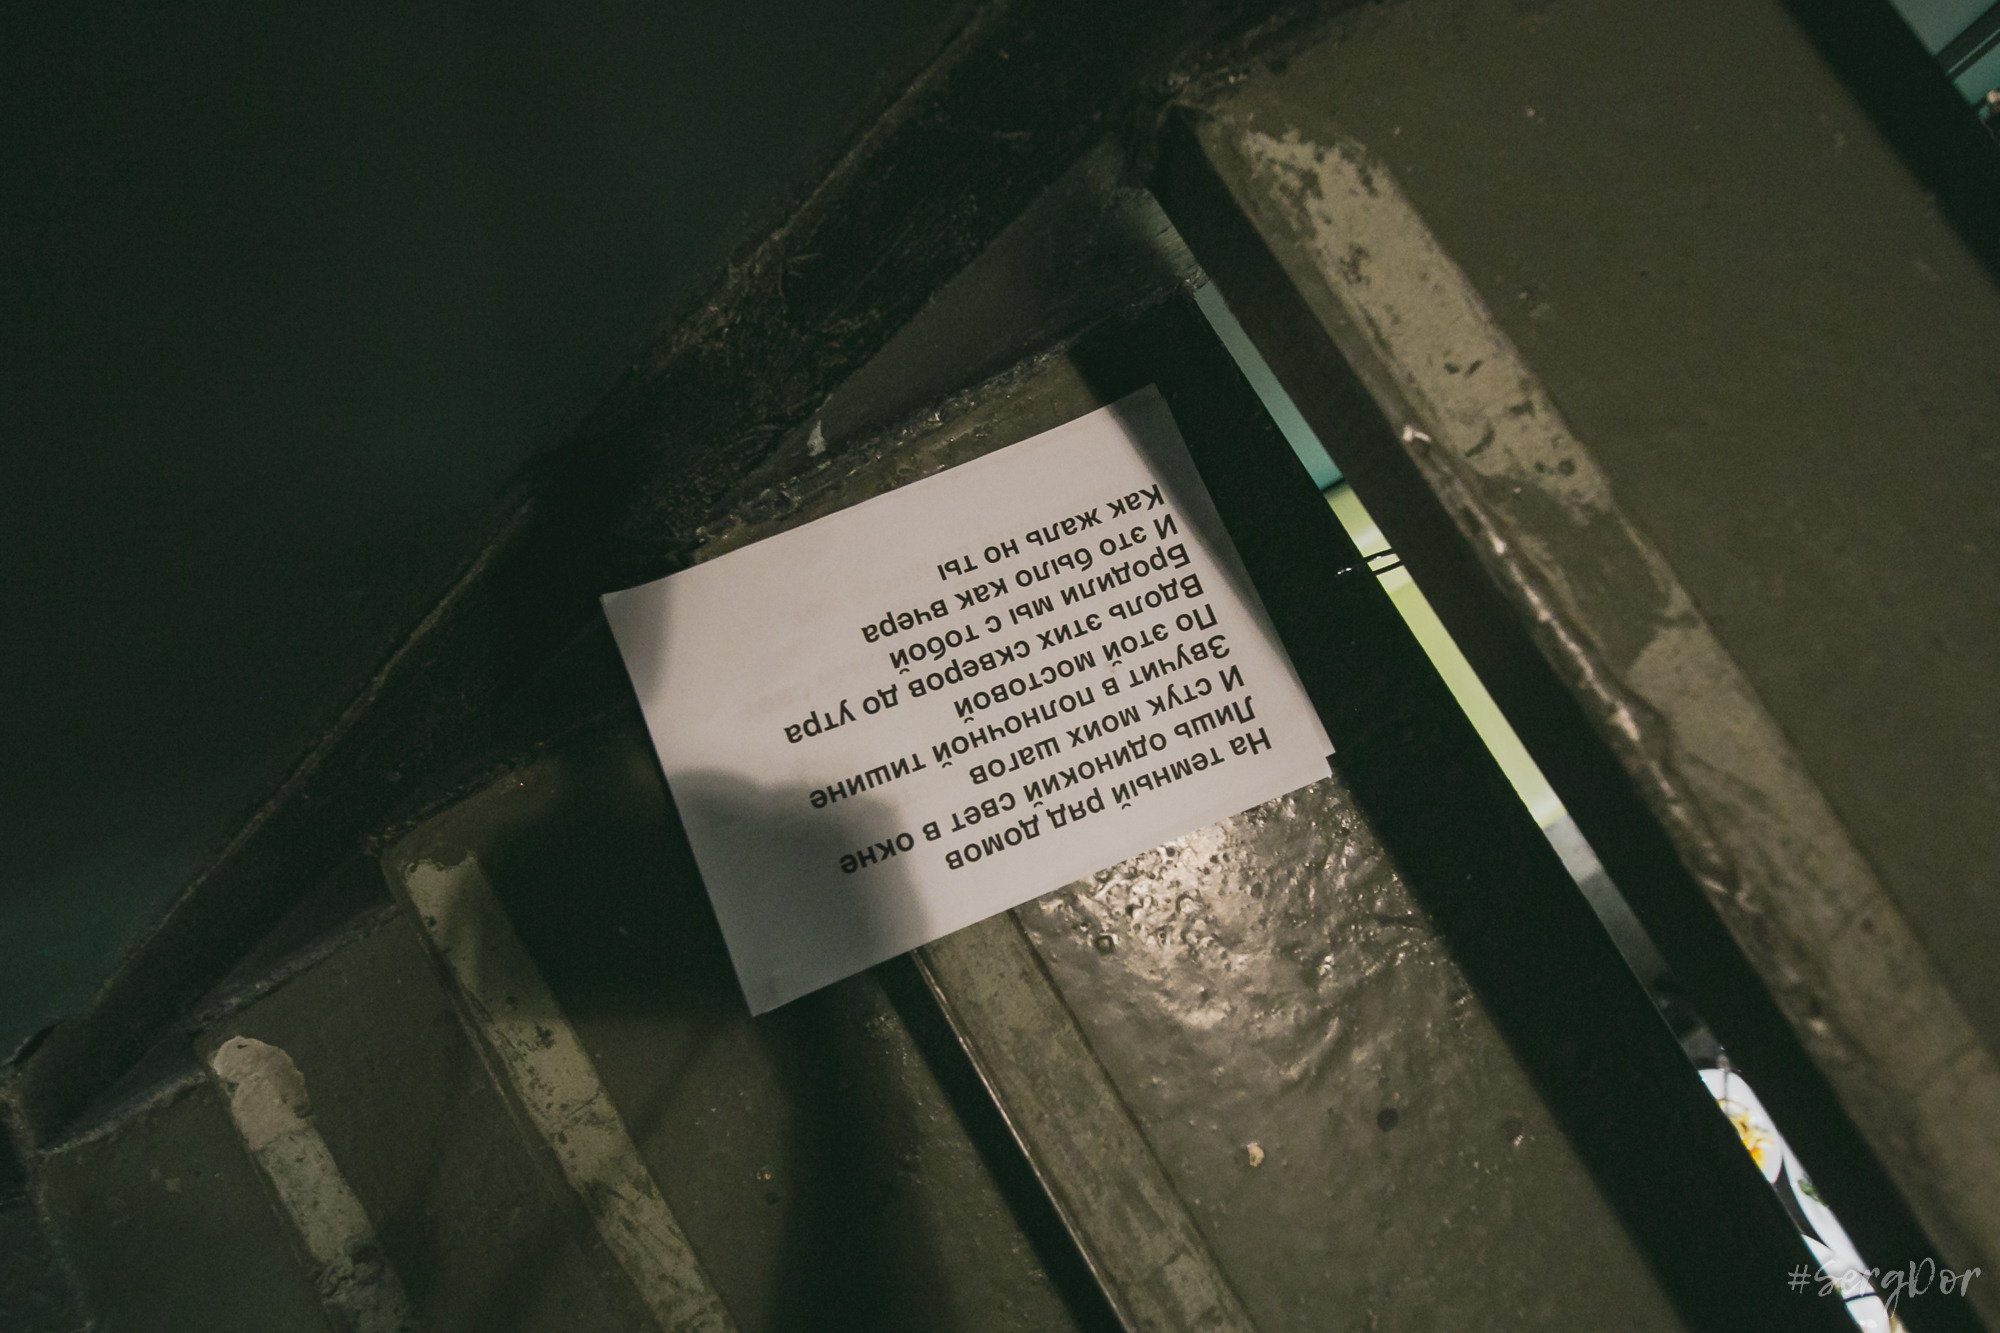 На темный ряд домов
Лишь одинокий свет в окне
И стук моих шагов
Звучит в полночной тишине
По этой мостовой
Вдоль этих скверов до утра
Бродили мы с тобой
И это было как вчера
Как жаль но ты
#SergDor